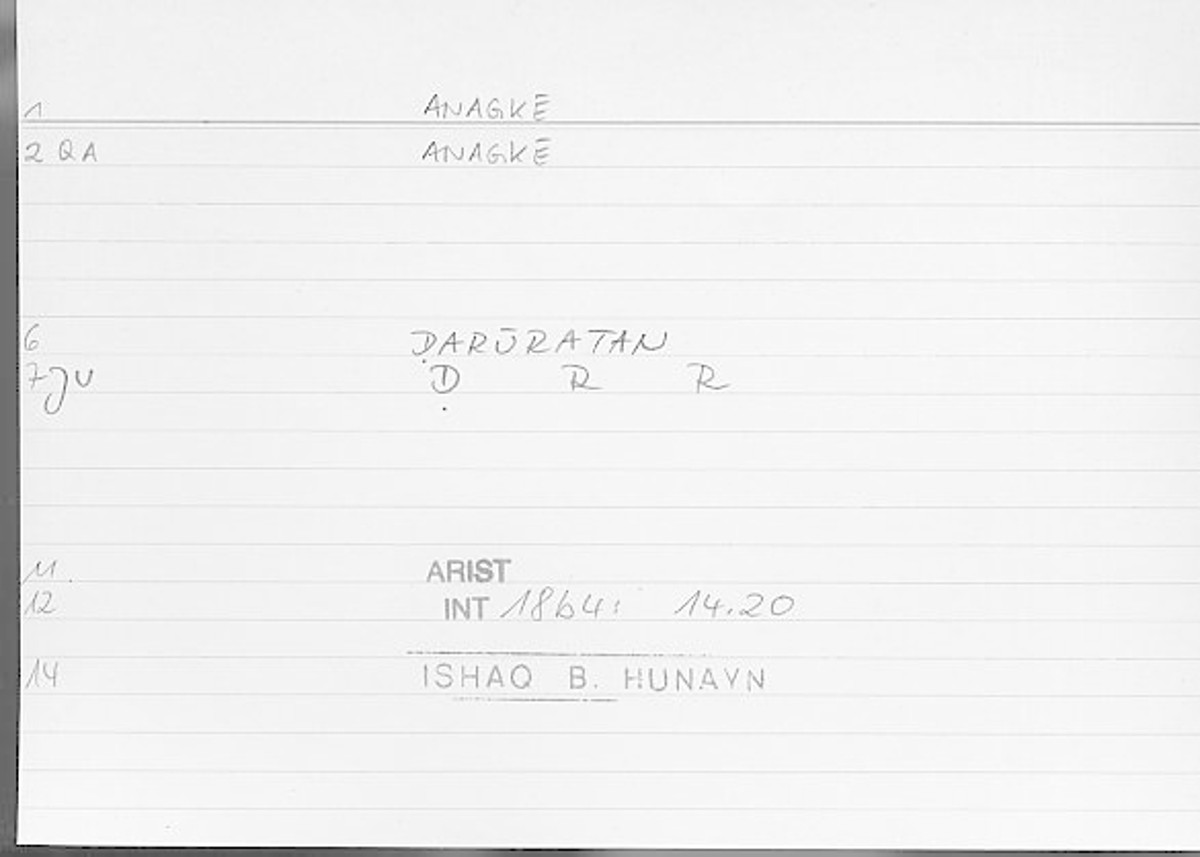 1 ANAGKĒ
2 QA ANAGKĒ
6 ḌARŪRATAN
7 JU Ḍ R R
11.
ARIST
12 INT 18b4: 14.20
14 ISHAQ B. HUNAYN